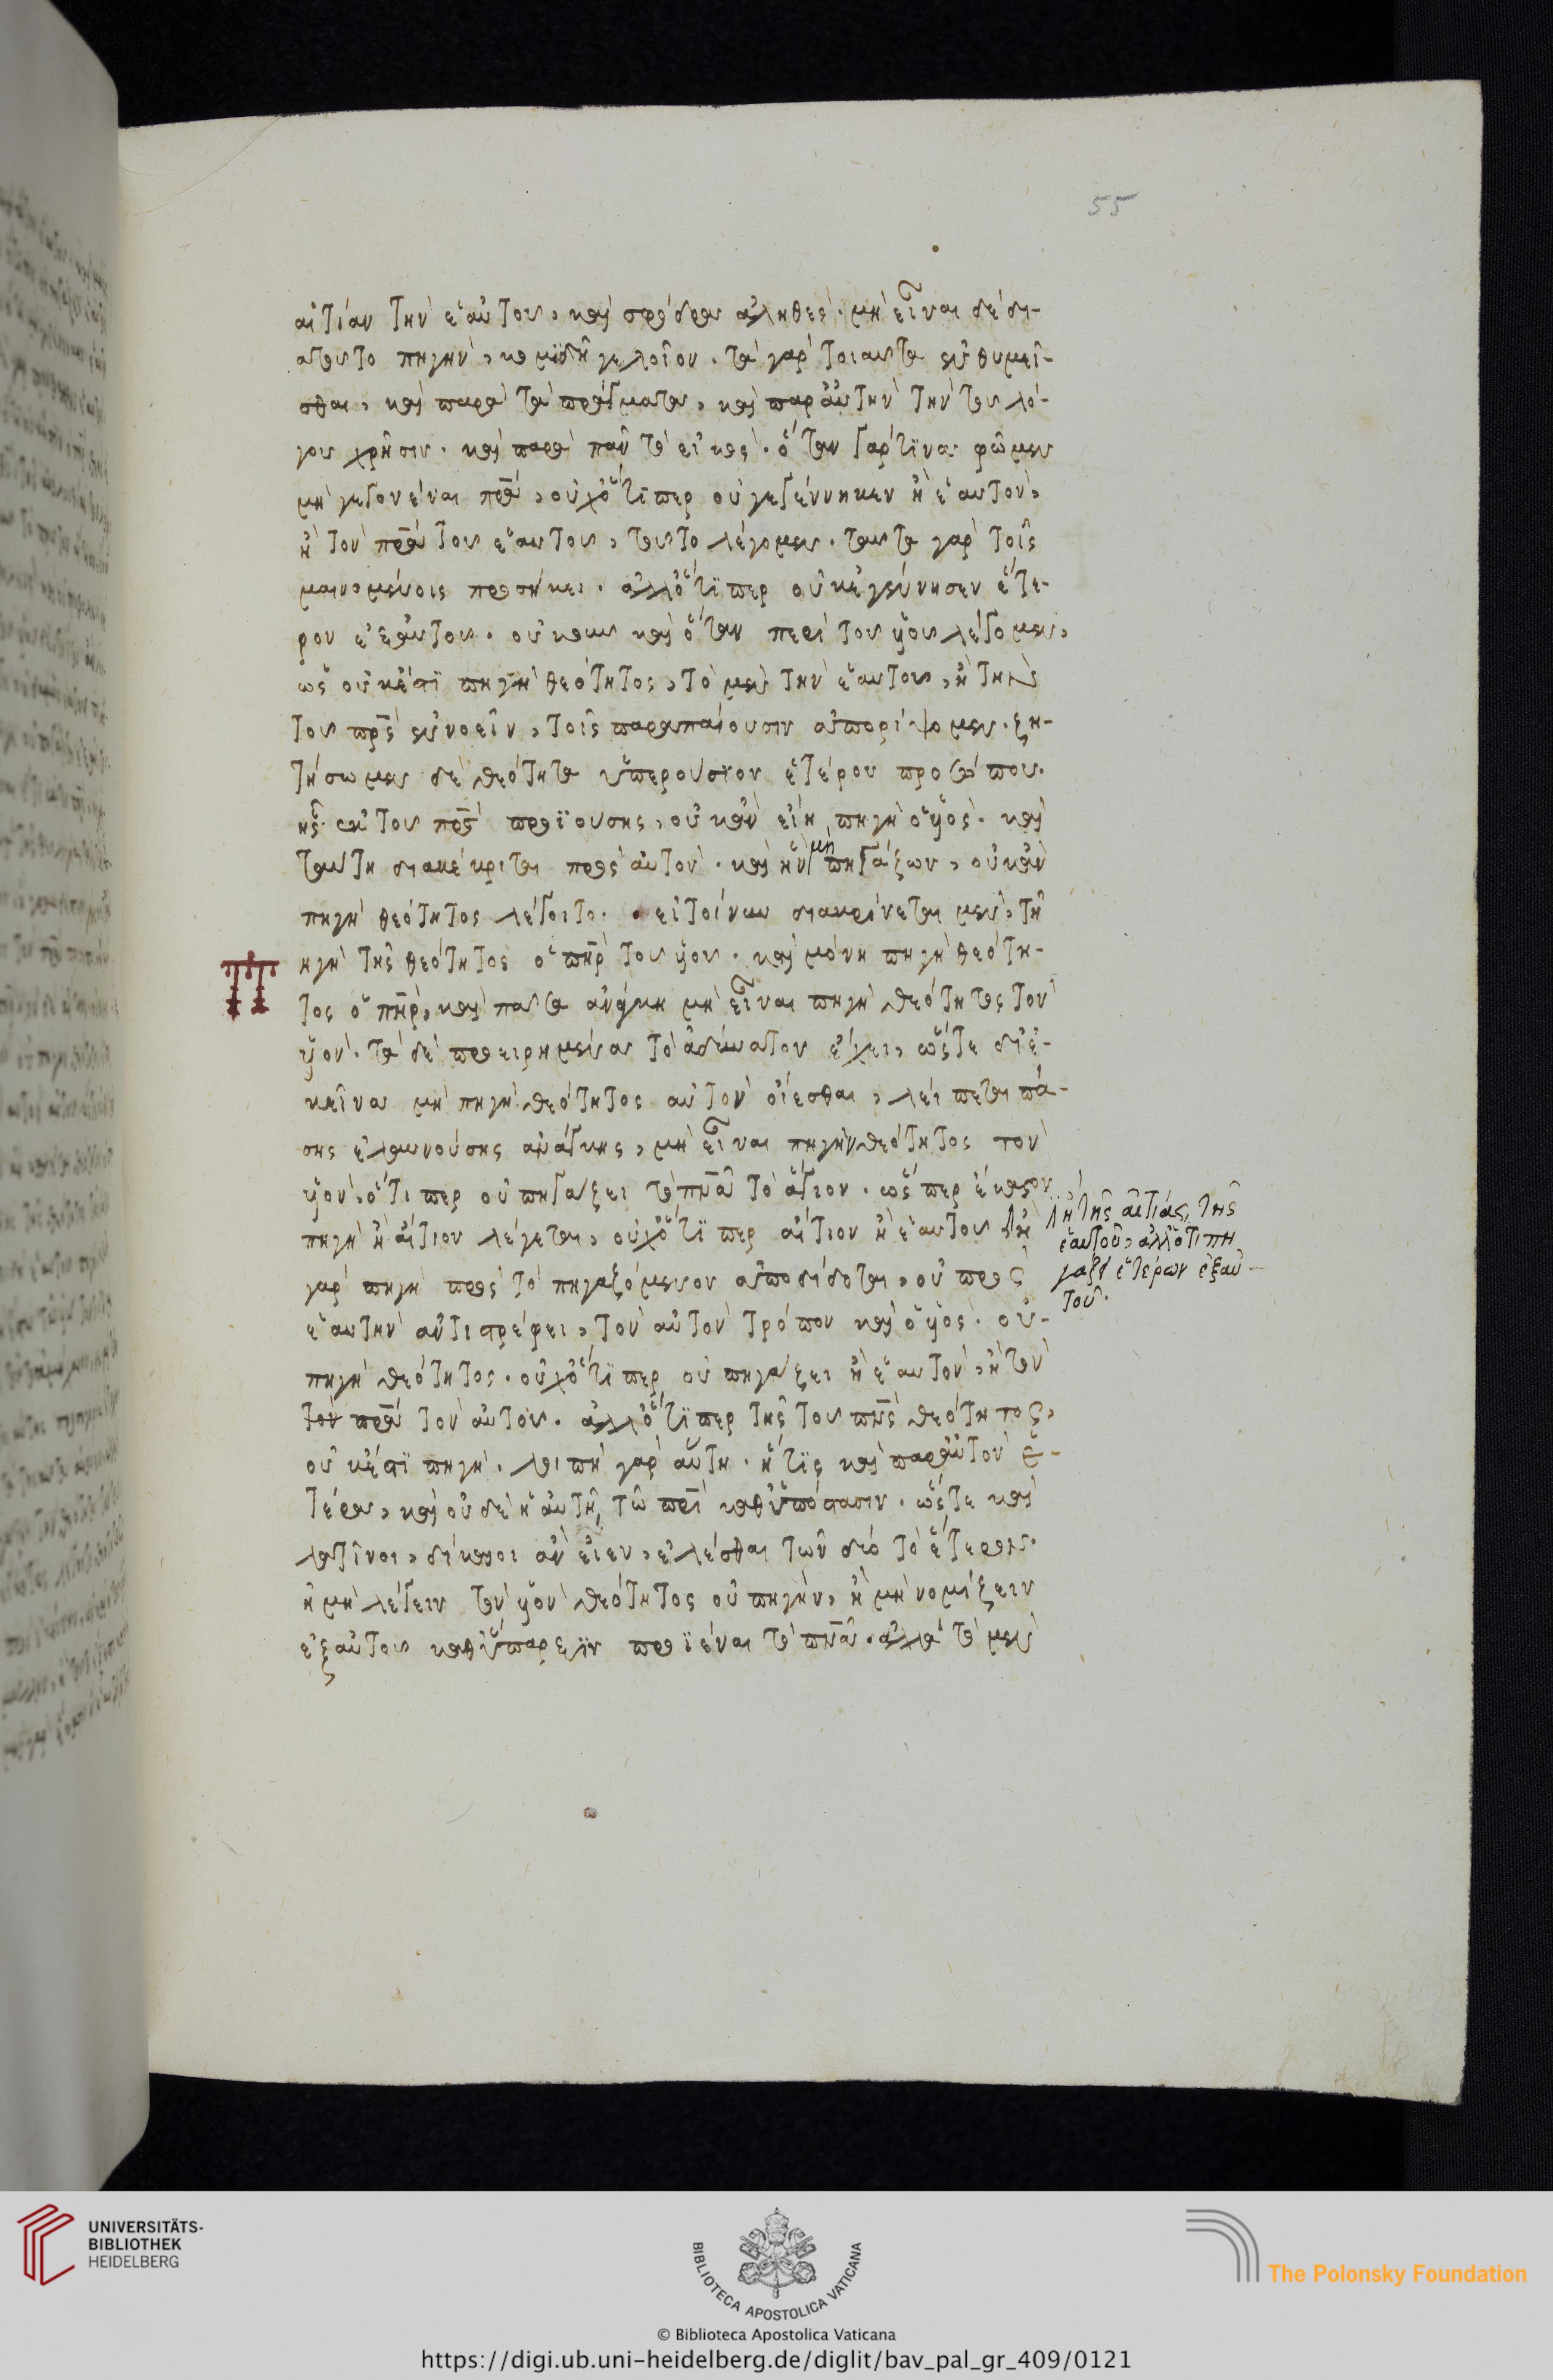 55
αἰτίαν τὴν ἑαυτοῦ, καὶ σφόδρα ἀληθὲς. μὴ εἶναι δὲ δι-
ατοῦτο πηγὴν, κομιδῆ γελοῖον. τὰ γὰρ τοιαῦτα ἐνθυμεῖ-
σθαι, καὶ παρὰ τὰ πράγματα, καὶ παρ αὐτὴν τὴν τοῦ λό-
γου χρῆσιν. καὶ παρὰ πᾶν τὸ εἰκὸς. ὅταν γάρ τινα φῶμεν
μὴ γεγονέναι πρα, οὐχ ὅτι περ οὐ γεγέννηκεν ἢ ἑαυτὸν,
ἢ τὸν πρα τοῦ ἑαυτοῦ, τοῦτο λέγομεν. ταῦτα γὰρ τοῖς
μαινομένοις προσήκει. ἀλλ ὅτι περ οὐκ ἐγέννησεν ἕτε-
ρον ἐξαυτοῦ. οὐκοῦν καὶ ὅταν περὶ τοῦ υἱοῦ λέγομεν,
ὡς οὐκ ἔστι πηγὴ θεότητος, τὸ μὲν τὴν ἑαυτοῦ, ἢ τὴν
τοῦ πρς ἐννοεῖν, τοῖς παραπαίουσιν ἀπορίψομεν. ζη-
τήσωμεν δὲ θεότητα ὑπερούσιον ἑτέρου προσώπου.
ἧς ἐκ τοῦ πρς προϊούσης, οὐκ ἂν εἴη πηγὴ ὁ υἱὸς. καὶ
ταύτη διακέκριται πρὸς αὐτὸν. καὶ ἣν μὴ πηγάζων, οὐκ ἂν
πηγὴ θεότητος λέγοιτο. εἰ τοίνυν διακρίνεται μὲν, τῆ
Πηγὴ τῆς θεότητος ὁ πηρ τοῦ υἱοῦ. καὶ μόνη πηγὴ θεότη-
τος ὁ πηρ, καὶ πᾶσα ἀνάγκη μὴ εἶναι πηγὴ θεότητος τὸν
υἱὸν. τὰ δὲ προειρημένα τὸ ἀδύνατον ἔχει, ὥστε δι ἐ-
κεῖνα μὴ πηγὴ θεότητος αὐτὸν οἴεσθαι, λείπεται πά-
σης ἐλαυνούσης ἀνάγκης, μὴ εἶναι πηγὴν θεότητος τὸν
υἱὸν, ὅτι περ οὐ πηγάζει τὸ πνα τὸ ἅγιον. ὥσπερ ἕκαστον
πηγὴ ἢ αἴτιον λέγεται, οὐχ ὅτι περ αἴτιον ἢ ἑαυτοῦ ἢ
ἢ τῆς αἰτίας, τῆς
ἑαυτοῦ, ἀλλ ὅτι πη
γάζει ἑτέρων ἐξαυ-
τοῦ.
γὰρ πηγὴ πρὸς τὸ πηγαζόμενον ἀποδίδοται, οὐ πρὸς
ἑαυτὴν ἀντιστρέφει, τὸν αὐτὸν τρόπον καὶ ὁ υἱὸς. οὐ-
πηγὴ θεότητος. οὐχ ὅτι περ οὐ πηγάζει ἢ ἑαυτὸν, ἢ τὸν
τὸν πρα τὸν αὐτοῦ. ἀλλ ὅτι περ τῆς τοῦ πνς θεότητος,
οὐκ ἔστι πηγὴ. λοιπὴ γὰρ αὕτη. ἥτις καὶ παρ αὐτὸν ἑ-
τέρα, καὶ οὐδὲ ἡ αὐτὴ, τῶ πρι καθ ὑπόστασιν. ὥστε καὶ
λατῖνοι, δίκαιοι ἂν εἶεν, ἑλέσθαι τῶν δύο τὸ ἕτερον.
ἢ μὴ λέγειν τὸν υἱὸν θεότητος οὐ πηγὴν, ἢ μὴ νομίζειν
ἐξαυτοῦ καθ ὕπαρξιν προϊέναι τὸ πνα. ἀλλὰ τὸ μὲν
UNIVERSITÄTS-
BIBLIOTHEK
HEIDELBERG
BIBLIOTECA APOSTOLICA VATICANA
The Polonsky Foundation
© Biblioteca Apostolica Vaticana
https://digi.ub.uni-heidelberg.de/diglit/bav_pal_gr_409/0121